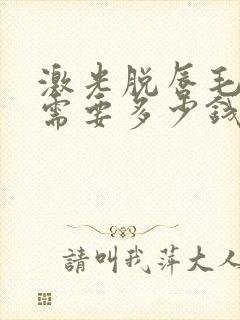 激光脱唇毛
需要多少錢
請叫我萍大人